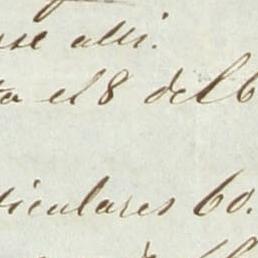 use alli.
ta el 8 del 6
ticulares 60.